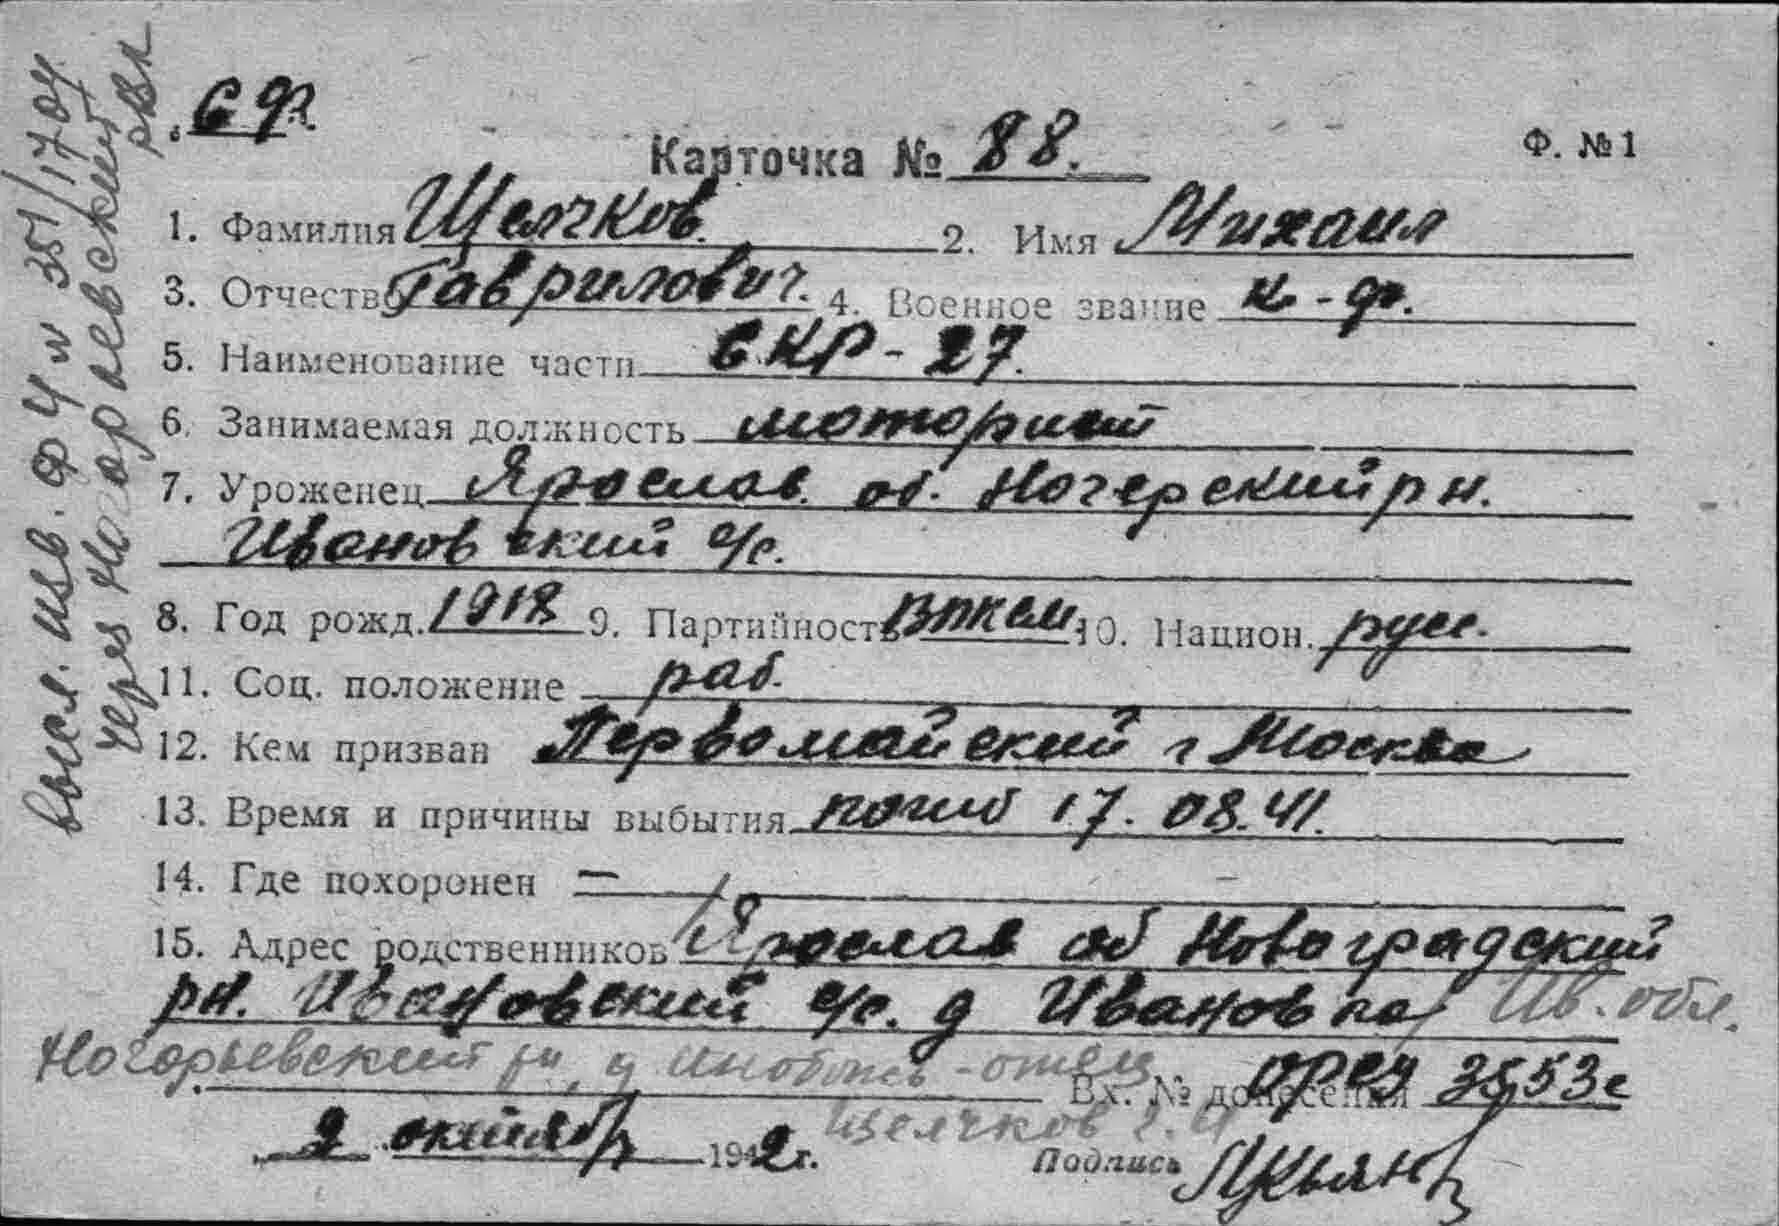 СФ.
Карточка № 88.
Ф. № 1
1. Фамилия Щелчков. 2. Имя Михаил
3. Отчество Гаврилович. 4. Военное звание к-ф.
5. Наименование части СКР-27.
6. Занимаемая должность моторист
7. Уроженец Ярослав. об. Ногерский рн.
Ивановский с/с.
8. Год рожд. 1918 9. Партийность ВЛКСМ 10. Национ. русс.
11. Соц. положение раб.
12. Кем призван Первомайский г Москва
13. Время и причины выбытия погиб 17.08.41.
14. Где похоронен —
15. Адрес родственников Ярослав об Новоградский
рн. Ивановский с/с. д Ивановка Ив. обл.
Ногорьевский рн, д - отец
Вх. № донесения 3553с
Щелчков Г. И
2 октября 1942 г.
Подпись
высл. изв. ф 4 № 351/1704
через Ногорьевский
РВК